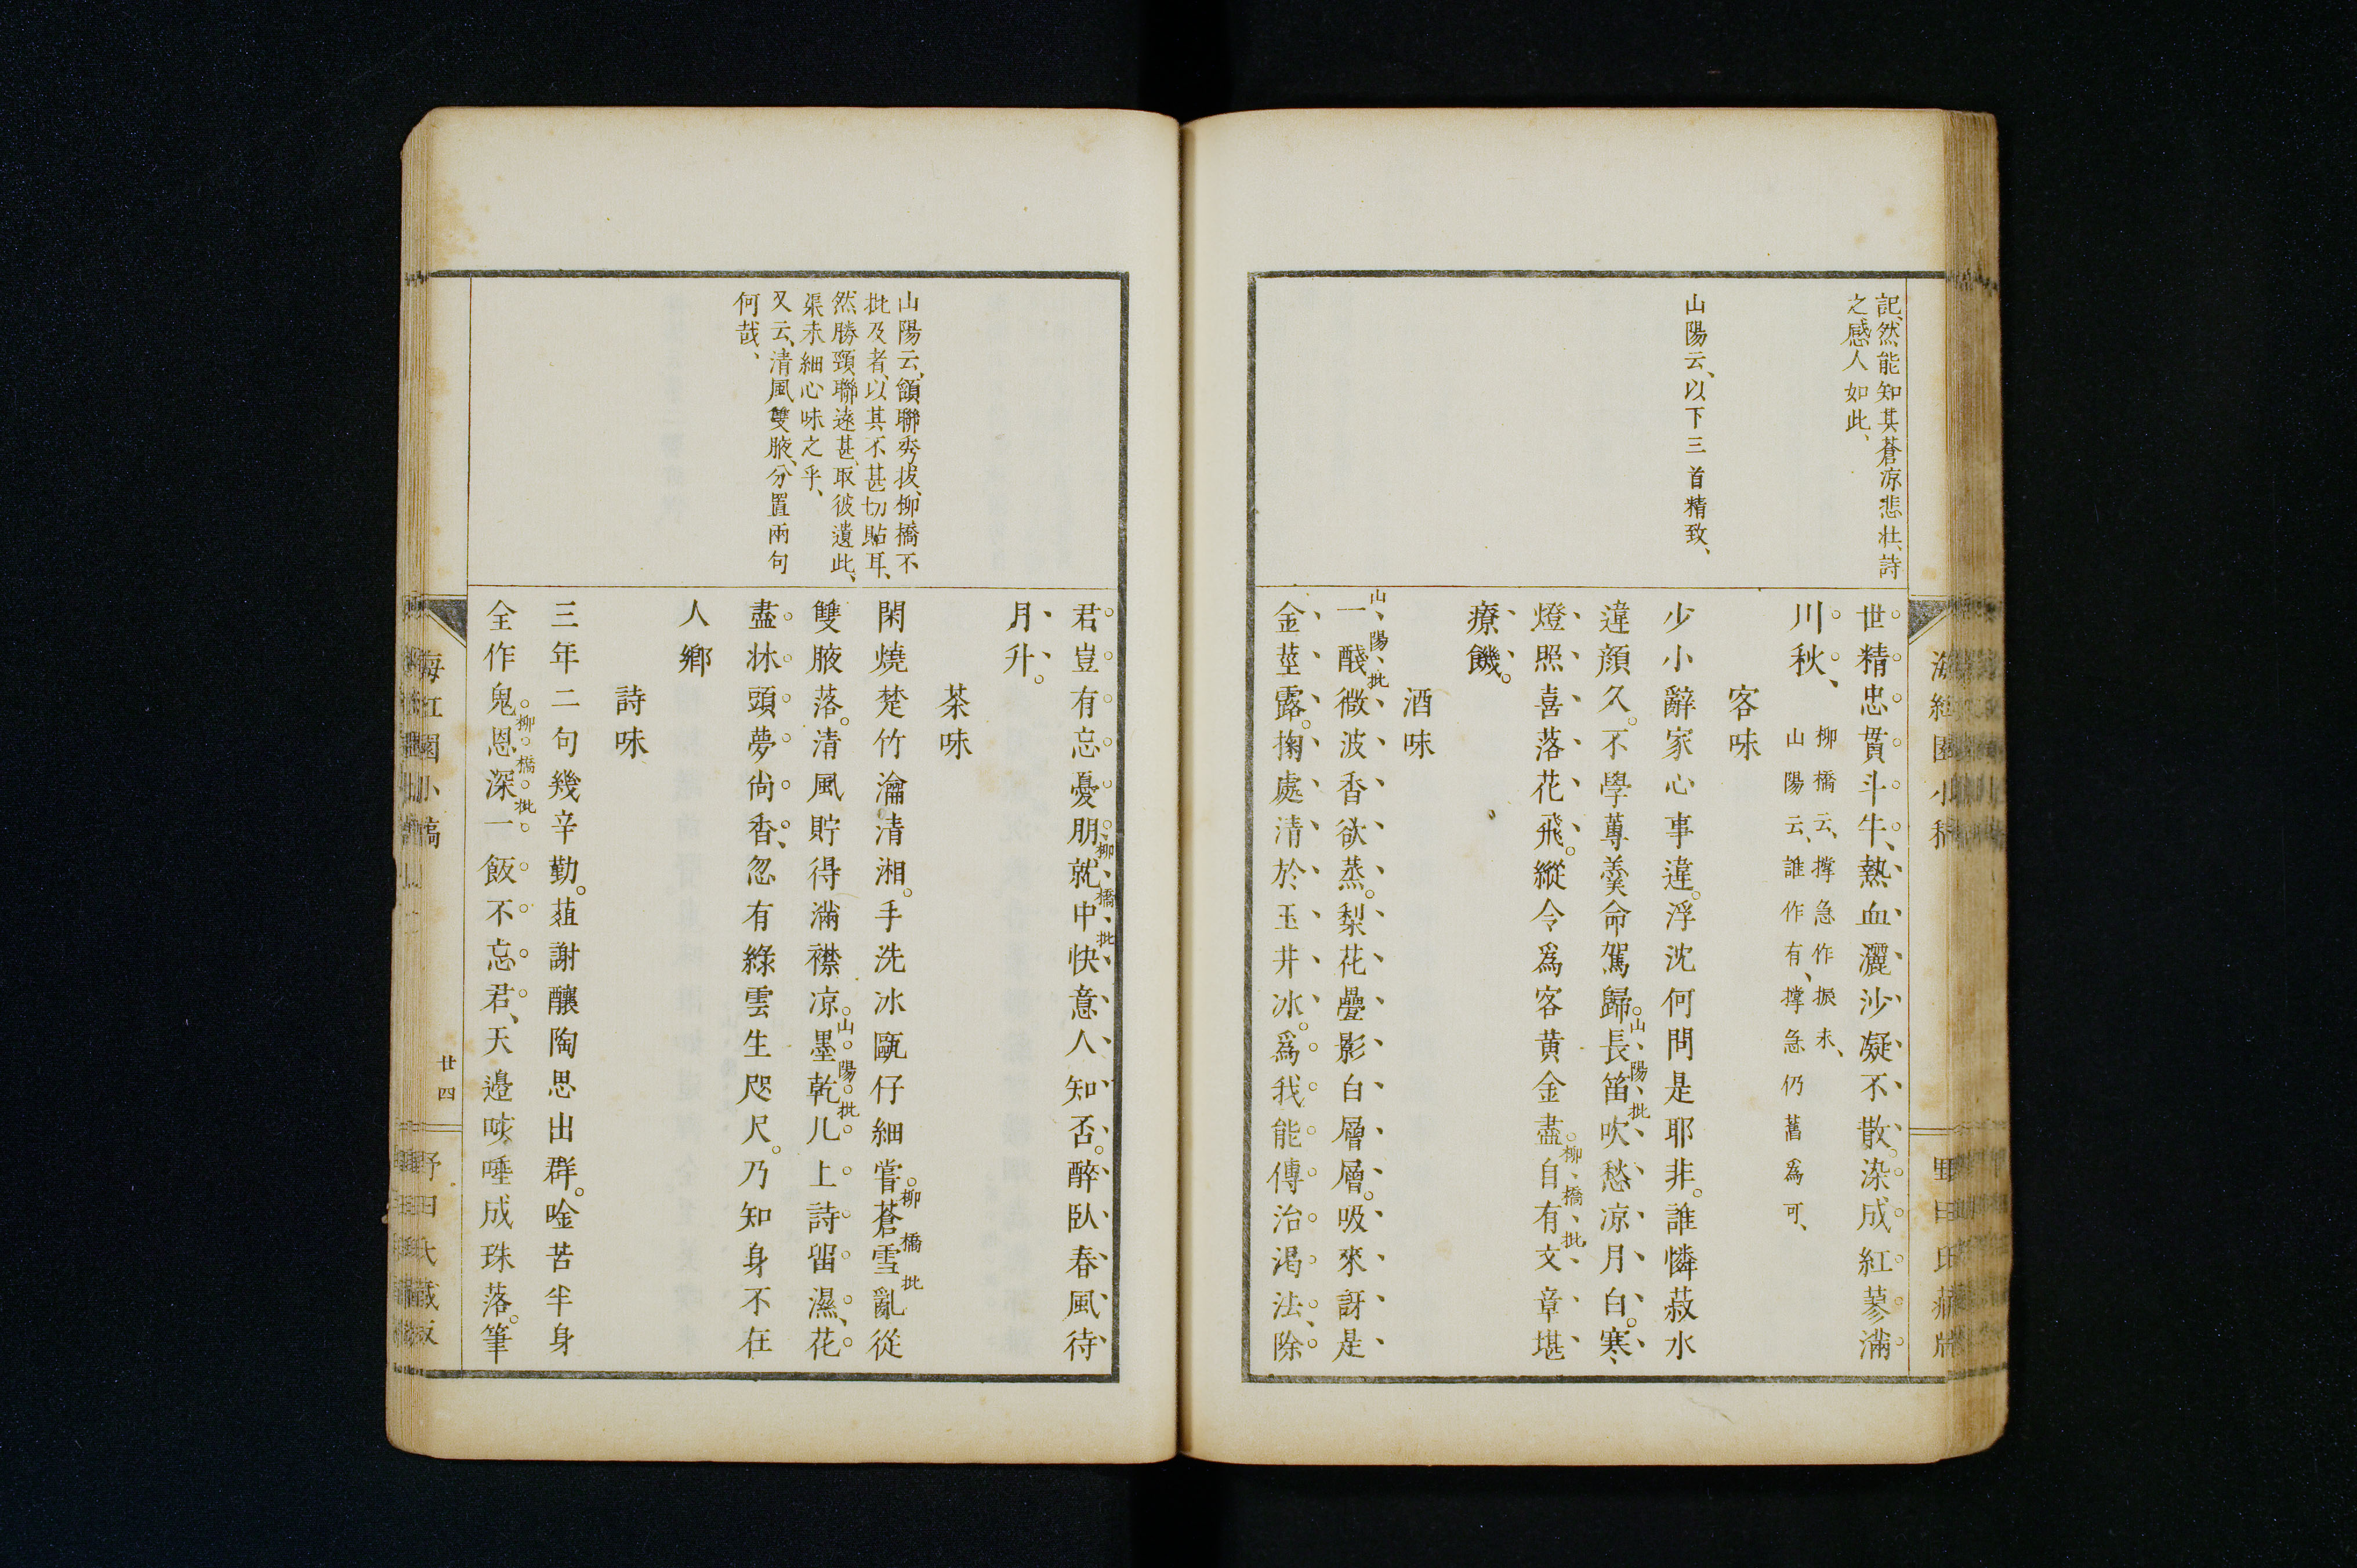 記、然能知其蒼涼悲壯、詩
之感人如此、
山陽云、以下三首精致、
世精忠貫斗牛、熱血灑沙凝不散。染成紅蓼滿
川秋、
柳橋云、撑急作振未、
山陽云、誰作有、撑急仍舊爲可、
客味
少小辭家心事違。浮沈何問是耶非。誰憐菽水
違顔久。不學蓴羹命駕歸。長笛吹愁凉月白。寒
山陽批
燈照喜落花飛。縱令爲客黄金盡。自有文章堪
柳橋批
療饑。
酒味
一醆微波香欲蒸。梨花疊影白層層。吸來訝是
山陽批
金莖露。掬處清於玉井冰。爲我能傳治渇法、除
海紅園小稿
野田氏藏版
山陽云、頷聯秀拔、柳橋不
批及者、以其不甚切貼耳、
然勝頸聯遠甚、取彼遺此、
渠未細心味之乎、
又云、清風雙腋、分置兩句
何哉、
君豈有忘憂朋就中快意人知否。醉臥春風待
柳橋批
月升。
茶味
閑燒楚竹瀹清湘。手洗冰甌仔細嘗。蒼雪亂從
柳橋批
雙腋落。清風貯得滿襟凉。墨乾几上詩留濕、花
山陽批
盡牀頭夢尚香、忽有綠雲生咫尺。乃知身不在
人鄉
詩味
三年二句幾辛勤。葅謝釀陶思出群。唫苦半身
全作鬼。恩深一飯不忘君、天邊咳唾成珠落。筆
柳橋批
海紅園小稿
廿四
野田氏藏版